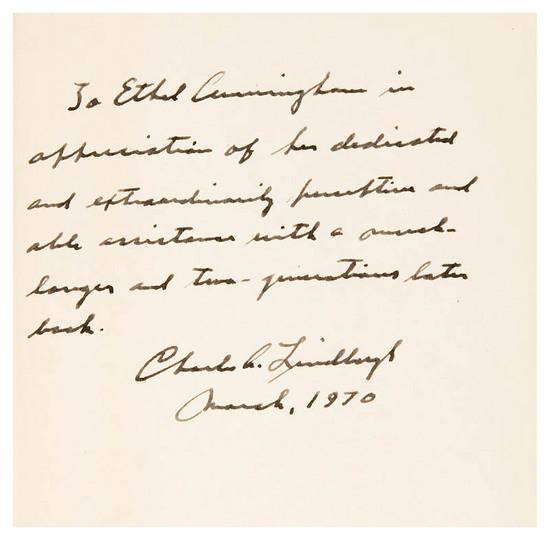 To Ethel Cunningham in
appreciation of her dedicated
and extraordinarily perceptive and
able assistance with a much-
longer and two-generations later
book.
Charles A. Lindbergh
March, 1970